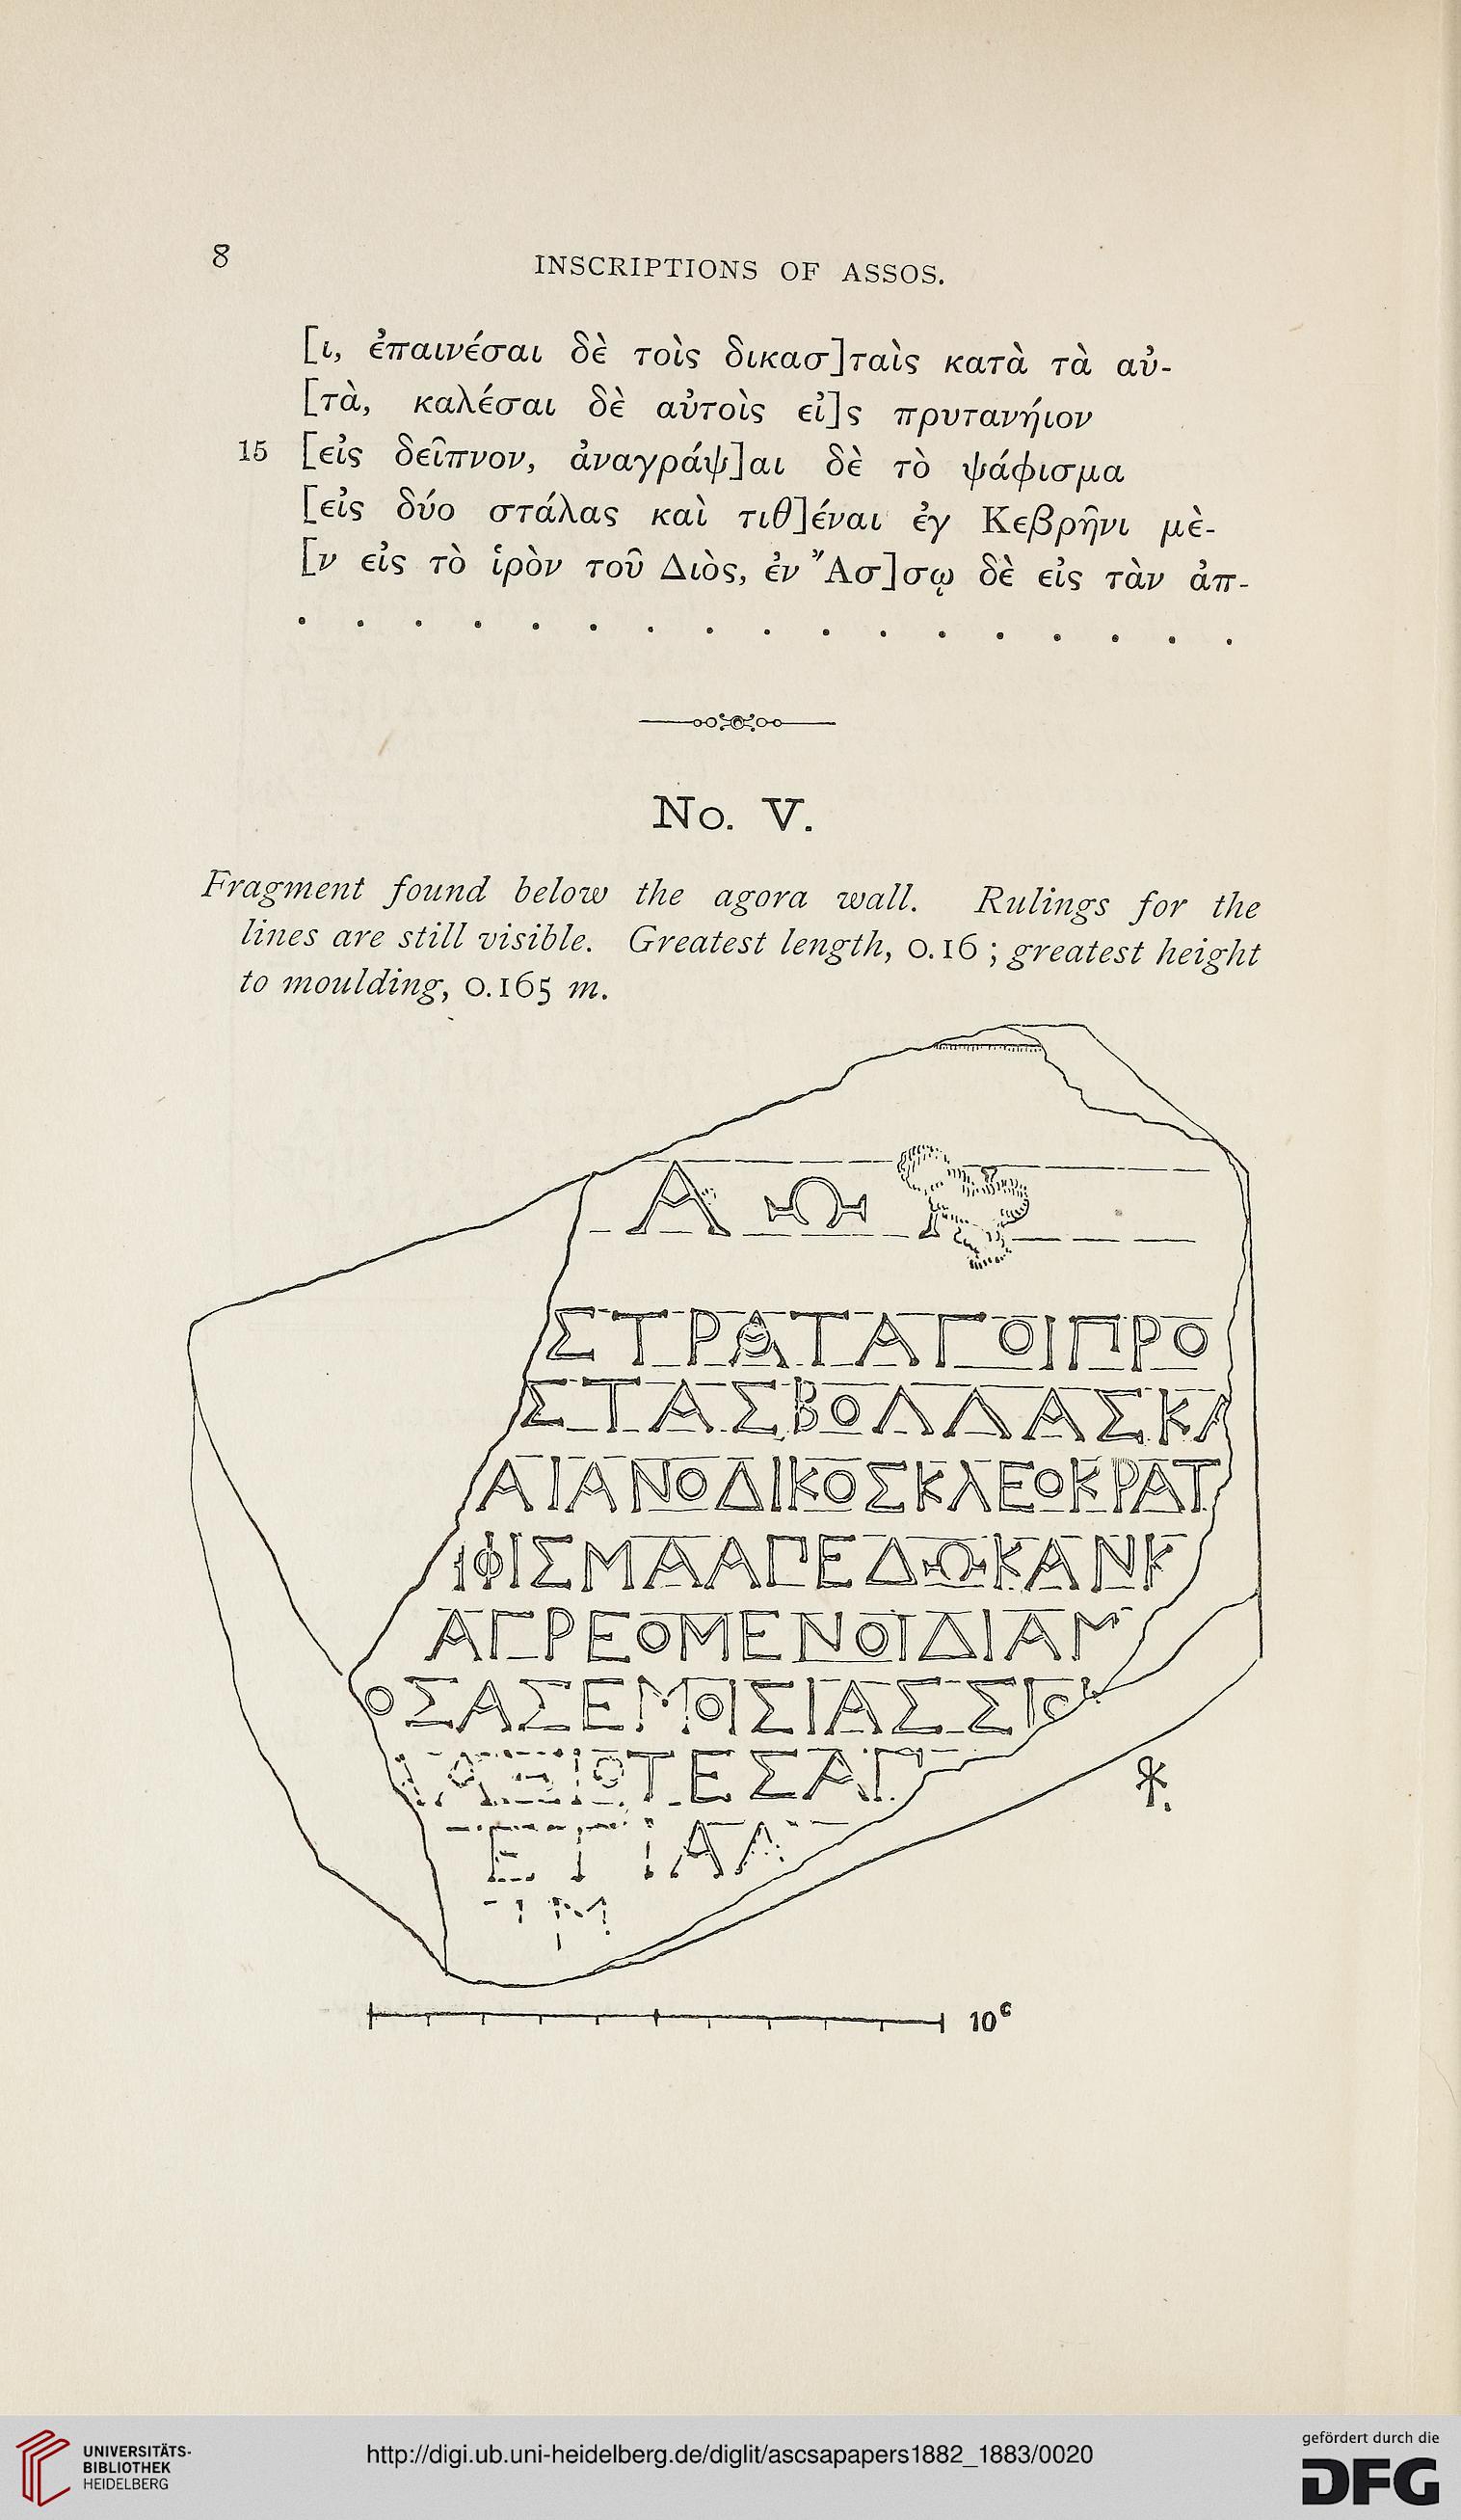 8
INSCRIPTIONS OF ASSOS.
[ι, ἐπαινέσαι δὲ τοὶς δικασ]ταὶς κατὰ τὰ αὐ-
[τὰ, καλέσαι δὲ αὐτοὶς εἰ]ς πρυτανήιον
15 [εἰς δεῖπνον, ἀναγράψ]αι δὲ τὸ ψάφισμα
[εἰς δύο στάλας καὶ τιθ]έναι ἐγ Κεβρῆνι μὲ-
[ν εἰς τὸ ἱρὸν τοῦ Διὸς, ἐν Ἄσ]σῳ δὲ εἰς τὰν ἀπ-
. . . . . . . . . . . . . . . . .
No. V.
Fragment found below the agora wall. Rulings for the
lines are still visible. Greatest length, 0.16 ; greatest height
to moulding, 0.165 m.
Α Ω
ΣΤΡΑΤΑΓΟΙΠΡΟ
ΣΤΑΣΒΟΛΛΑΣΚΑ
ΑΙΑΝΟΔΙΚΟΣΚΛΕΟΚΡΑΤ
ΙΦΙΣΜΑΑΠΕΔΩΚΑΝΚ
ΑΓΡΕΟΜΕΝΟΙΔΙΑΜ
ΟΣΑΣΕΜΟΙΣΙΑΣΣΤΟ
ΤΕΣΑΓ
Ε Ι ΙΑΛ
Μ
10ᶜ
UNIVERSITÄTS-
BIBLIOTHEK
HEIDELBERG
http://digi.ub.uni-heidelberg.de/diglit/ascsapapers1882_1883/0020
gefördert durch die
DFG